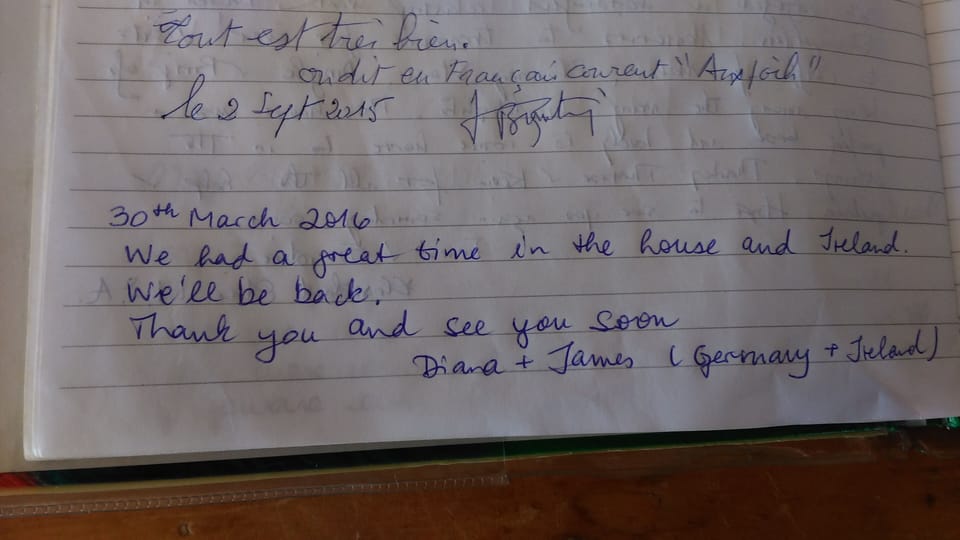 Tout est très bien.
on dit en Français courant "Au poil"
le 2 Sept 2015
30th March 2016
We had a great time in the house and Ireland.
We'll be back.
Thank you and see you soon
Diana + James (Germany + Ireland)